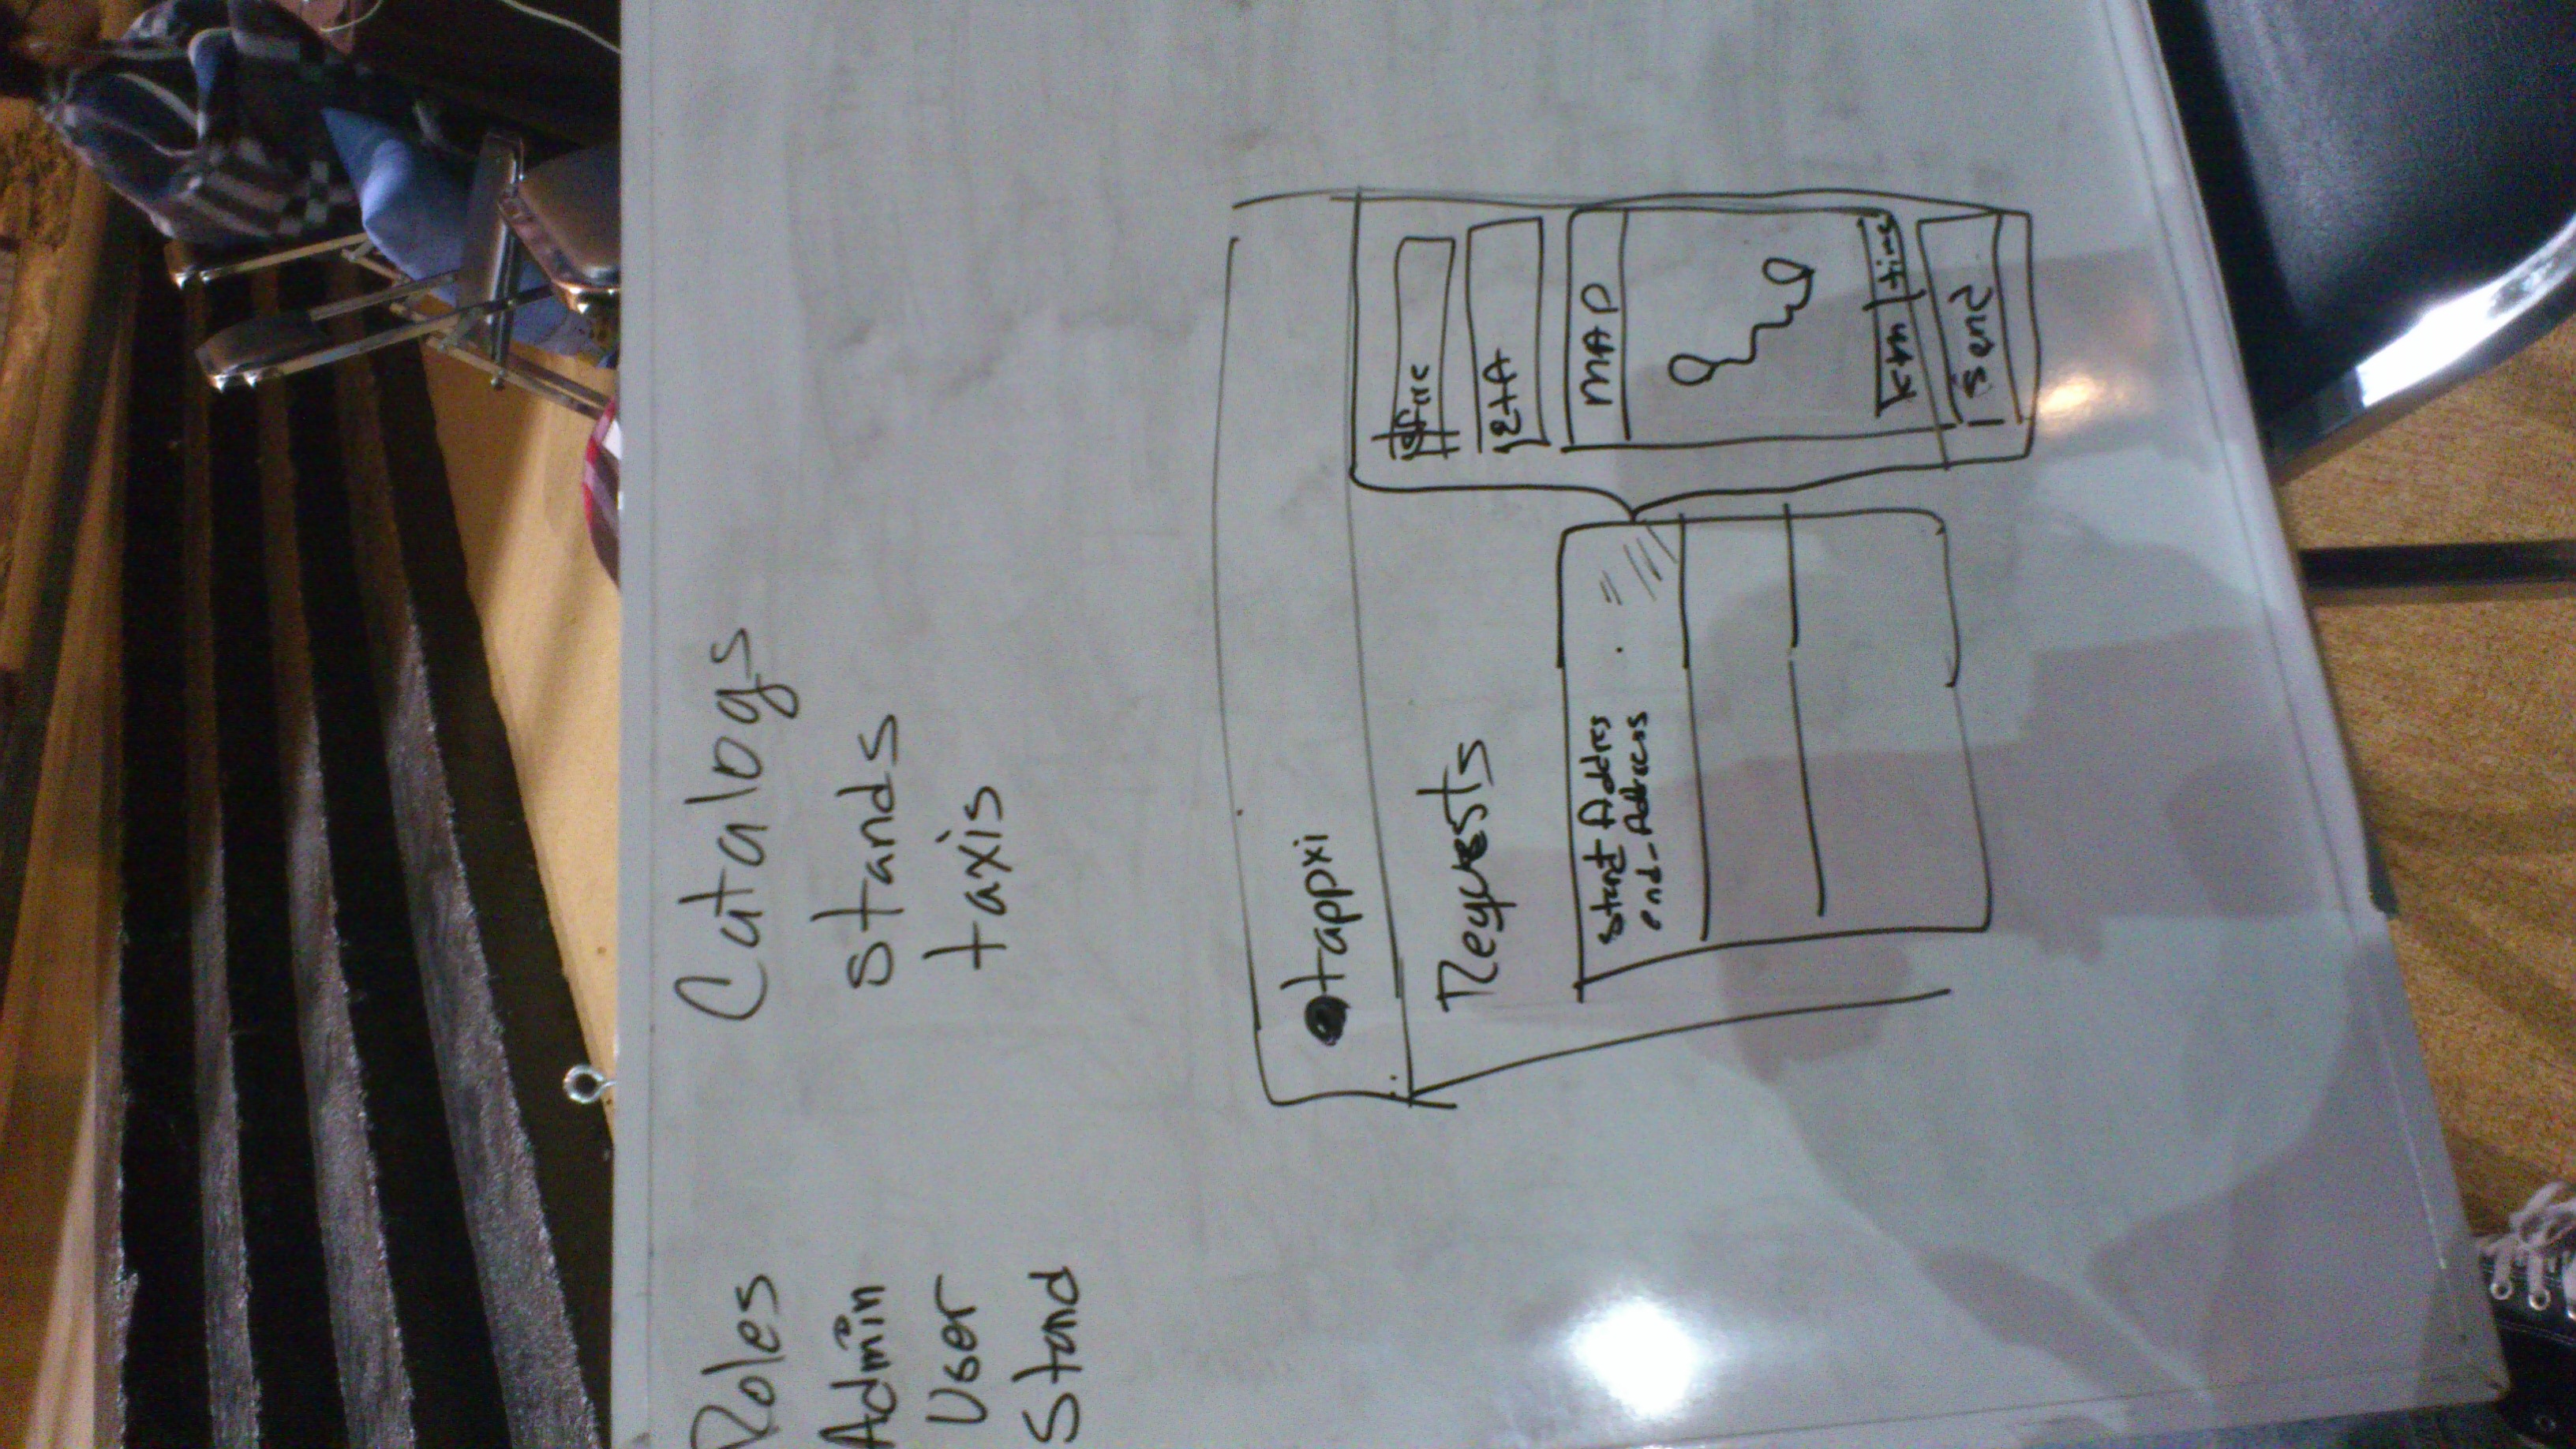 Roles
Admin
User
Stand
Catalogs
stands
taxis
tappxi
Requests
start Addres
end_Address
ETA
MAP
km
time
send